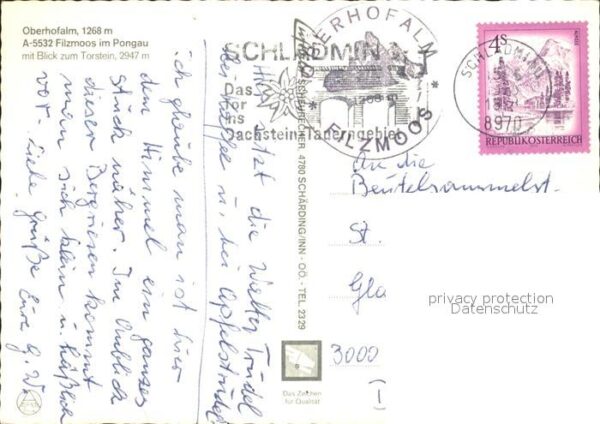 Oberhofalm, 1268 m
A-5532 Filzmoos im Pongau
mit Blick zum Torstein, 2947 m
Hier sitzt die Walter Trudel
bei Kaffee u. bei Apfelstrudel
ich glaube man ist hier
dem Himmel ein ganzes
Stück näher. Im Anblick
dieser Bergriesen kommt
man sich klein u. häßlich
vor. Liebe Grüße Eure G. W.
SCHLADMING
Das
Tor
ins
Dachstein-Tauerngebiet
OBERHOFALM
1268 m
FILZMOOS
SCHLADMING
8970
4S
REPUBLIK ÖSTERREICH
4780 SCHÄRDING/INN - OÖ. - TEL. 23 29
An die
Beutelsammelst.
St.
Gla
3000
I
privacy protection
Datenschutz
Das Zeichen
für Qualität